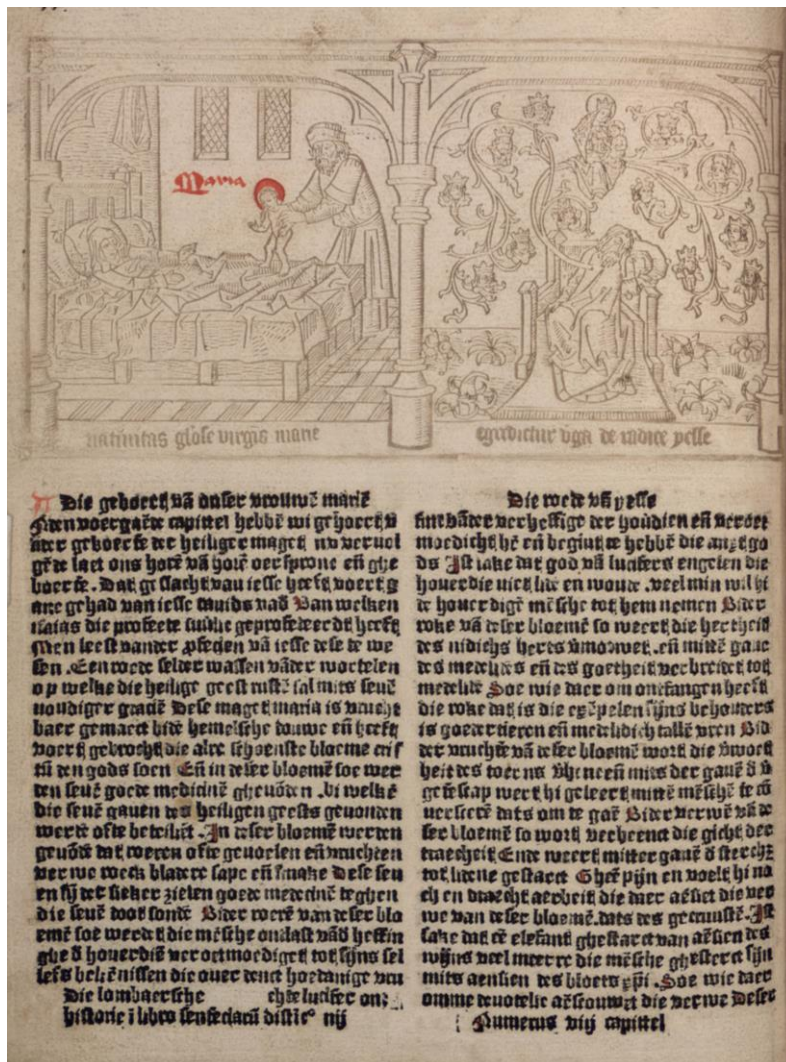 Maria
natiuitas gl̄ose virgīs marie
egredietur v̄ga de radice yesse
Die geboert vā onser vrouwē mariē
Inden voergaēde capittel hebbē wi gehoert v
ader geboerte der heiliger maget nv vervol
gēde laet ons horē vā horē oersprone eñ ghe
boerte. Dat geslacht vau iesse heeft voert g
anc gehad van iesse dauids vad Van welken
isaias die profeete
Men leest vander ꝓfecien vā iesse dese te we
sen. Een roede selder wassen vāder wortelen
op welke die heilige geest rustē sal mits seuē
uoudiger graciē Dese maget maria is vrucht
baer gemaect bidē hemelsche douwe eñ heeft
voert gebrocht die alre schoenste bloeme cris
tū den gods soen Eñ in deser bloemē soe wer
den seuē goede medicinē gheuōden. bi welkē
die seuē gauen des heiligen geests geuonden
werdē ofte beteikēt. In deser bloemē werden
geuōdē dat roeren ofte geuoelen eñ vruchten
ver we roeck bladere sape eñ smake Dese seu
en sӯ der sieker zielen goede medecinē teghen
die seuē doot sondē Bider roerē van deser blo
emē soe werdet die mēsche ontlast vād heffin
ghe d̄ houerdiē ver oetmoediget tot sijns sel
lefs bekēnissen die ouer denct hoedanige
Die lombaersche echte lucifer on
historie ī libro
Die roede vā yesse
sine vāder verheffīge der houdien eñ veroet
moedicht hē eñ begint te hebbē die anxt go
ds Ist sake dat god vā lucifers engelen die
houerdie niet lidē en woude. veel min wil hi
de houerdigē mēsche tot hem nemen Bider
roke vā deser bloemē so weert die hertheit
des nidichs herts v̄morwet. eñ mittē gaue
des medelidēs eñ des goetheit verbreidet tot
medelidē Soe wie daer om ontfangen heeft
die roke dat is die exēpelen sijns behouders
is goedertieren eñ medelidich tallē vren Bid
der vruchtē vā deser bloemē wort die
heit des toerns
geest scap wert hi geleert mittē mēschē te
verlierē dats om te gaē Bider verwe vā de
ser bloemē so wort verbrenct die gicht der
traecheit Ende weert mitter gauē d̄ sterchz
tot lidene gestarct Gheē pijn en voelt hi no
ch en draecht aerbeit die daer aēsiet die ver
we van deser bloemē. dats des gecruustē. Ist
sake dat ēē elefant ghestarct van aēsien des
wijns veel meerre die mēsche ghesterct sijn
mits aensien des bloets xp̄i. Soe wie daer
omme deuotelic aēscouwet die verwe deser
Numerus viij capittel